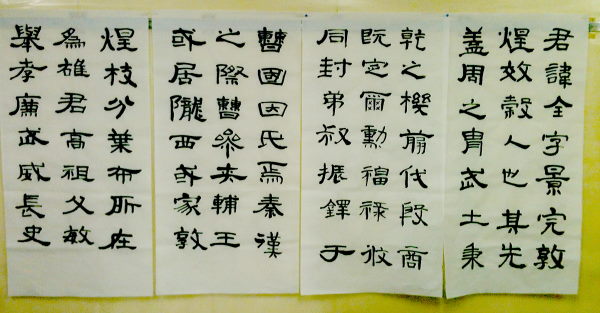 君諱全字景完敦
煌效穀人也其先
蓋周之胄武土秉
乾之機翦伐殷商
既定爾勳福祿攸
同封弟叔振鐸于
曹國因氏焉秦漢
之際曹參夾輔王
或居隴西或家敦
煌枝分葉布所在
為雄君高祖父敏
舉孝廉武威長史